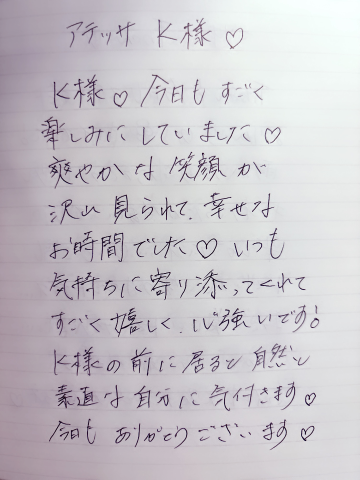 アテッサ K様♡
K様♡今日もすごく
楽しみにしていました♡
爽やかな笑顔が
沢山見られて、幸せな
お時間でした♡いつも
気持ちに寄り添ってくれて
すごく嬉しく、心強いです!
K様の前に居ると自然と
素直な自分に気付きます♡
今日もありがとうございます♡